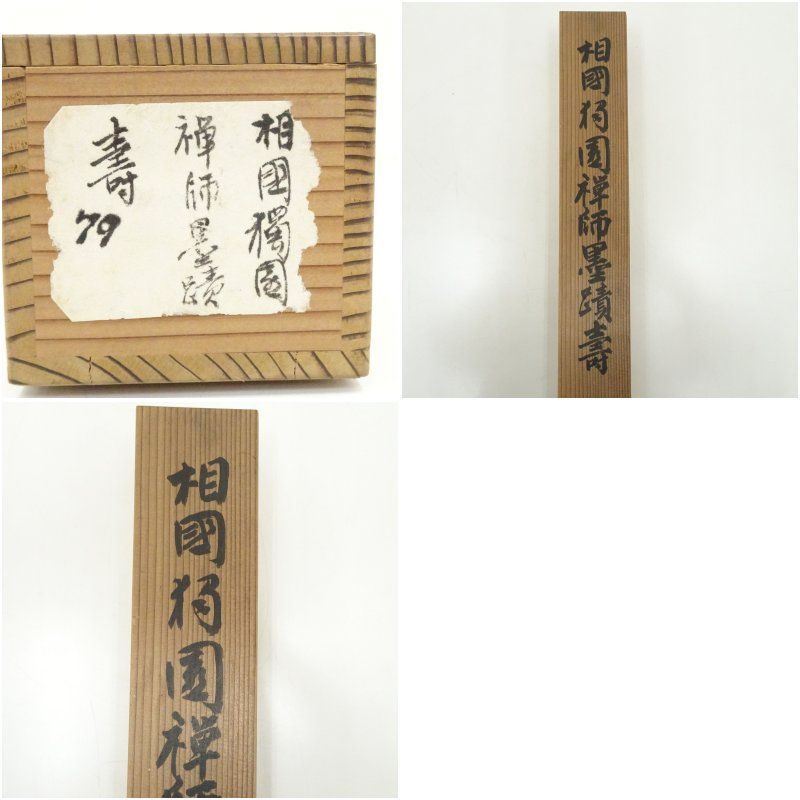 相國獨園
禅師墨蹟
壽
79
相國独園禅師墨蹟壽
相國独園禅師